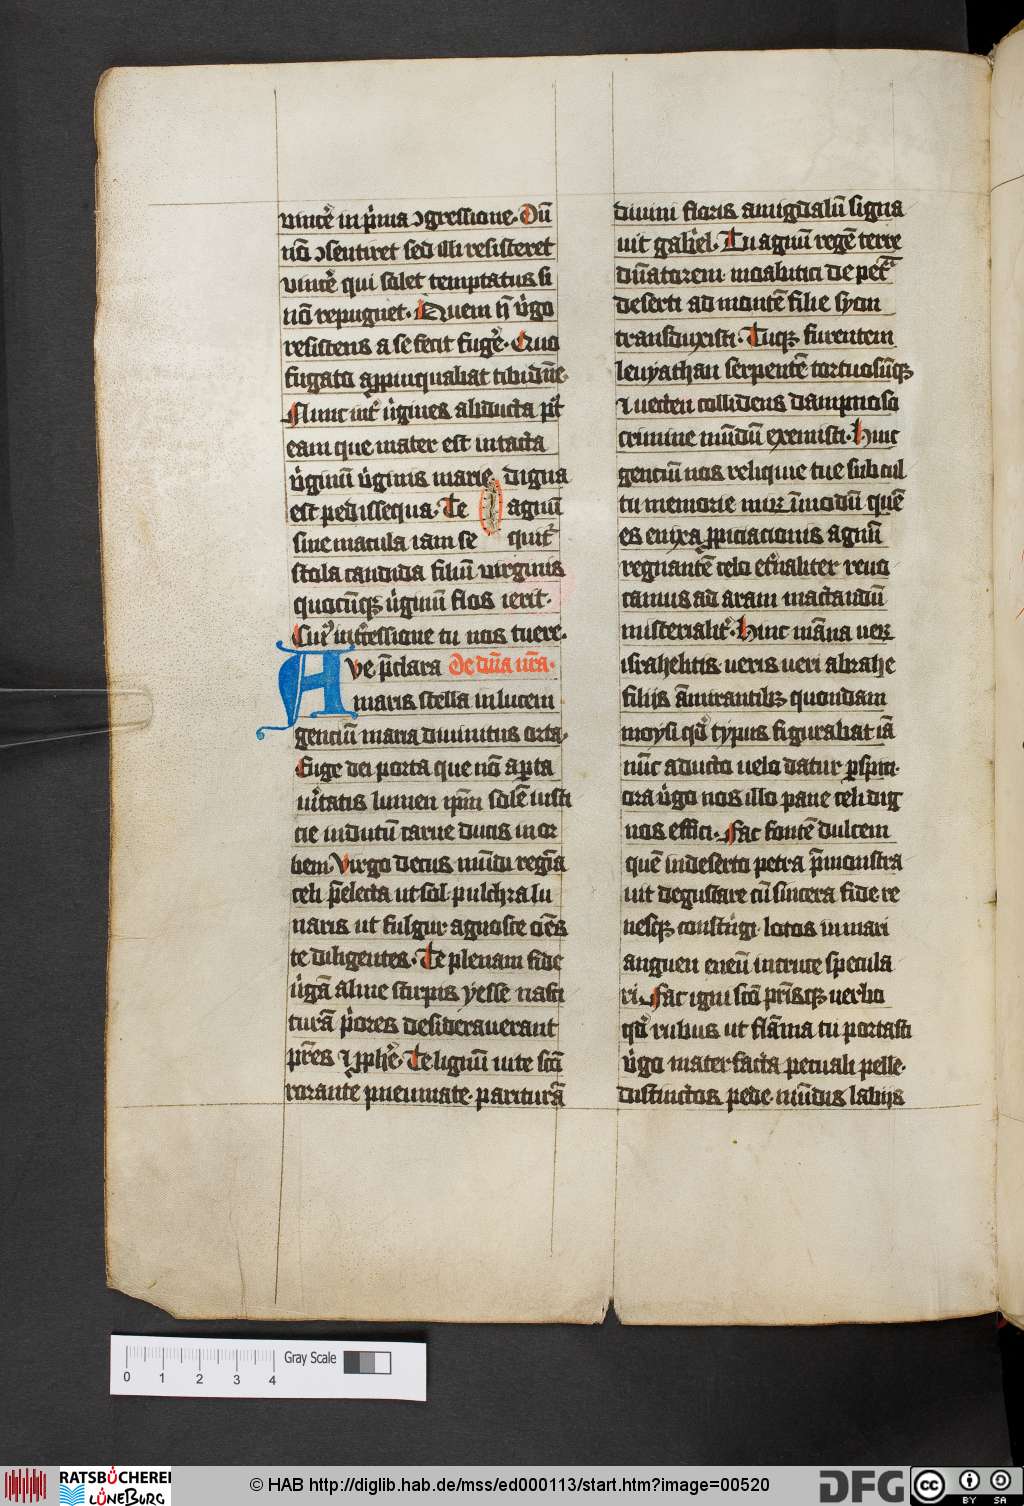 vincẻ in p̉ma ɔgressione. Dū
nō ɔsentiret sed illi resisteret
vincẻ qui solet temptatus si
nō repugnet. Quem h̄ v̉go
resistens a se fecit fugẻ. Quo
fugato appinquabat tibi dūe.
Nunc int̉ v̉gines abducta pt̉
eam que mater est intacta
v̉ginū v̉ginis marie. digna
est pedissequa. Te agnū
sine macula iam se quit̉
stola candida filiū virginis
quocūqꝫ v̉ginū flos ierit.
Cuꝰ int̉cessione tu nos tuere.
Ave p̄clara De dūa nr̄a.
maris stella in lucem
genciū maria divinitus orta.
Euge dei porta que nō aꝑta
v̉itatis lumen ip̄m solē iusti
cie indutū carne ducis in or
bem. Virgo decus mūdi regīa
celi p̄electa ut sol. pulchra lu
naris ut fulgur. agnosce oēs
te diligentes. Te plenam fide
v̉gā alme stirpis yesse nasci
turā p̉ores desideraverant
pr̄es ⁊ ꝓphē. Te lignū vite sc̄o
rorante pneumate. pariturā
divini floris amigdalū signa
vit gab̉el. Tu agnū regē terre
dūatorem. moabitici de pet̉
deserti ad montē filie syon
transduxisti. Tuqꝫ furentem
leuyathan serpentē tortuosūqꝫ
⁊ uecten collidens dampnoso
crimine mūdū exemisti. Hinc
genciū nos reliquie tue sub cul
tu memorie mirꝫ īmodū quē
es enixa ꝓpiciacionis agnū
regnantē celo et̉naliter revo
camus ad aram mactandū
misterialit̉. Hinc māna verꝫ
israhelitis. veris veri abrahe
filijs āmirantibꝫ quondam
moysi qd̉ typus figurabat iā
nūc aducto velo datur ꝑspici.
ora v̉go nos illo pane celi dig
nos effici. Fac fontē dulcem
quē indeserto petra p̄monstra
vit degustare cū sincera fide. re
nesqꝫ constr̉gi. lotos in mari
anguen eneū in cruce specula
ri. Fac igni sc̄o pr̄isqꝫ verbo
qd̉ rubus ut flāma tu portasti
v̉go mater facta pecuali pelle.
distinctos pede. mūdis labijs
0 1 2 3 4 Gray Scale
RATSBÜCHEREI LÜNEBURG
© HAB http://diglib.hab.de/mss/ed000113/start.htm?image=00520
DFG
cc BY SA